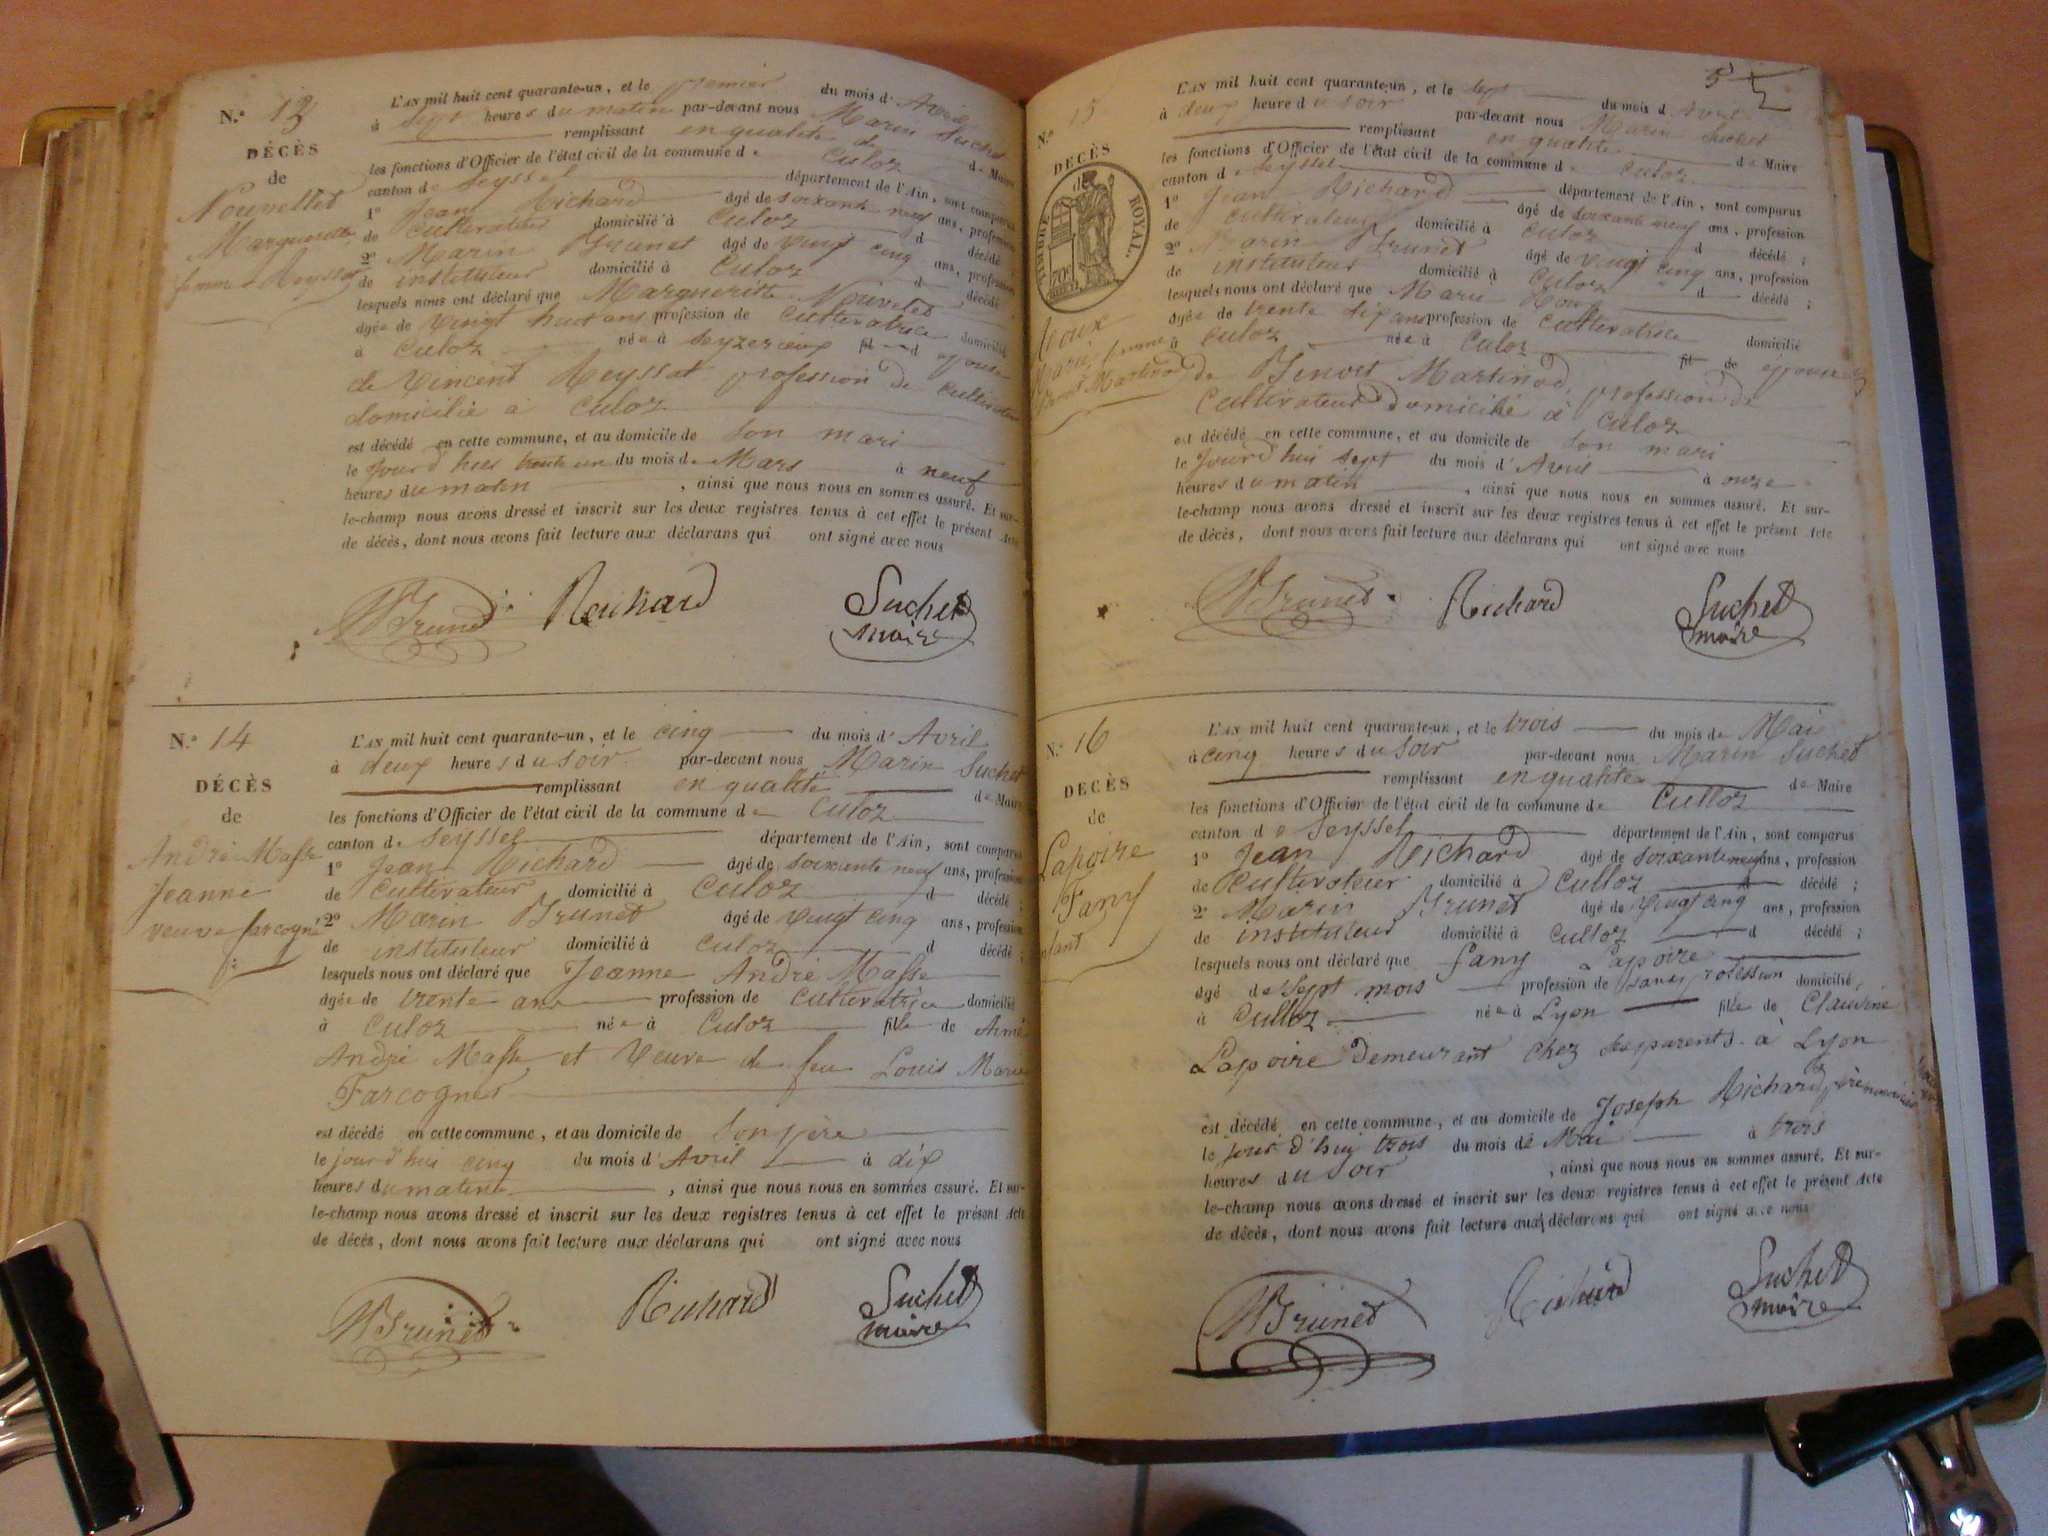 N.º 13
DÉCÈS
de
Nouvellet
Marguerite
femme Reyssat
L'AN mil huit cent quarante-un, et le premier du mois d'Avril
à sept heures du matin par-devant nous Marin Suchet
remplissant en qualité de Maire
les fonctions d'Officier de l'état civil de la commune de Culoz
canton de Seyssel département de l'Ain, sont comparus
1º Jean Richard âgé de soixante neuf ans, profession
de cultivateur domicilié à Culoz d décédé ;
2º Marin Brunet âgé de vingt cinq ans, profession
de instituteur domicilié à Culoz d décédé
lesquels nous ont déclaré que Marguerite Nouvelet
âgée de vingt huit ans profession de cultivatrice domicilié
à Culoz née à Seyzerieux fil d épouse
de Vincent Reyssat profession de cultivateur
domicilié à Culoz
est décédé en cette commune, et au domicile de son mari
le jour d'hier trente un du mois de Mars à neuf
heures du matin, ainsi que nous nous en sommes assuré. Et sur-
le-champ nous avons dressé et inscrit sur les deux registres tenus à cet effet le présent Acte
de décès, dont nous avons fait lecture aux déclarans qui ont signé avec nous
MBrunet Richard Suchet
maire
N.º 14
DÉCÈS
de
André Masse
Jeanne
veuve farcogné
L'AN mil huit cent quarante-un, et le cinq du mois d'Avril
à deux heures du soir par-devant nous Marin Suchet
remplissant en qualité de Maire
les fonctions d'Officier de l'état civil de la commune de Culoz
canton de Seyssel département de l'Ain, sont comparus
1º Jean Richard âgé de soixante neuf ans, profession
de cultivateur domicilié à Culoz d décédé ;
2º Marin Brunet âgé de vingt cinq ans, profession
de instituteur domicilié à Culoz d décédé ;
lesquels nous ont déclaré que Jeanne André Masse
âgée de trente ans profession de cultivatrice domicilié
à Culoz née à Culoz fille de Aimé
André Masse et veuve de feu Louis Marie
Farcognet
est décédé en cette commune, et au domicile de son père
le jourd'hui cinq du mois d'Avril à dix
heures du matin, ainsi que nous nous en sommes assuré. Et sur-
le-champ nous avons dressé et inscrit sur les deux registres tenus à cet effet le présent Acte
de décès, dont nous avons fait lecture aux déclarans qui ont signé avec nous
MBrunet Richard Suchet
maire
5
N.º 15
DÉCÈS
de
TIMBRE ROYAL.
70c
Marie femme
Benoit Martinod
L'AN mil huit cent quarante-un, et le sept du mois d Avril
à deux heure du soir par-devant nous Marin Suchet
remplissant en qualité de Maire
les fonctions d'Officier de l'état civil de la commune de Culoz
canton de Seyssel département de l'Ain, sont comparus
1º Jean Richard âgé de soixante neuf ans, profession
de cultivateur domicilié à Culoz d décédé ;
2º Marin Brunet âgé de vingt cinq ans, profession
de instituteur domicilié à Culoz d décédé ;
lesquels nous ont déclaré que Marie
âgée de trente six ans profession de cultivatrice domicilié
à Culoz née à Culoz fil de épouse
de Benoit Martinod, profession de
cultivateur domicilié à Culoz
est décédé en cette commune, et au domicile de son mari
le jourd'hui sept du mois d'Avril à onze
heures du matin, ainsi que nous nous en sommes assuré. Et sur-
le-champ nous avons dressé et inscrit sur les deux registres tenus à cet effet le présent Acte
de décès, dont nous avons fait lecture aux déclarans qui ont signé avec nous
MBrunet Richard Suchet
maire
N.º 16
DÉCÈS
de
Lapoire
Fany
enfant
L'AN mil huit cent quarante-un, et le trois du mois de Mai
à cinq heures du soir par-devant nous Marin Suchet
remplissant en qualité de Maire
les fonctions d'Officier de l'état civil de la commune de Culloz
canton de Seyssel département de l'Ain, sont comparus
1º Jean Richard âgé de soixante neuf ans, profession
de cultivateur domicilié à Culloz d décédé ;
2º Marin Brunet âgé de vingt cinq ans, profession
de instituteur domicilié à Culloz d décédé ;
lesquels nous ont déclaré que fany Lapoire
âgé de sept mois profession de sans profession domicilié
à Culloz née à Lyon fille de Claudine
Lapoire demeurant chez ses parents à Lyon
est décédé en cette commune, et au domicile de Joseph Richard père nourricier
le jour d'hui trois du mois de Mai à trois
heures du soir, ainsi que nous nous en sommes assuré. Et sur-
le-champ nous avons dressé et inscrit sur les deux registres tenus à cet effet le présent Acte
de décès, dont nous avons fait lecture aux déclarans qui ont signé avec nous
MBrunet Richard Suchet
maire